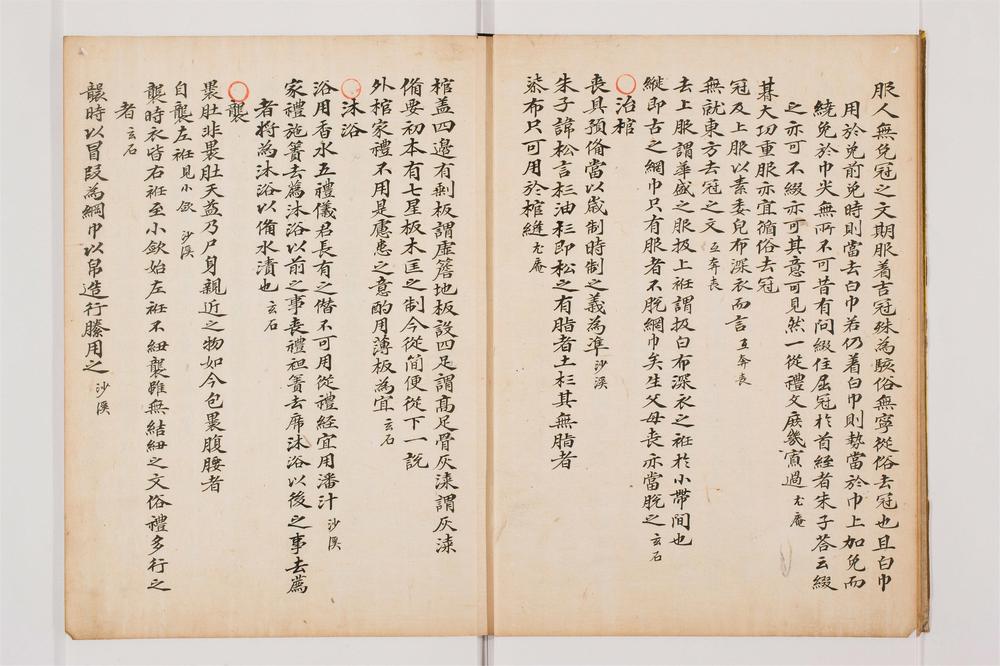 服人無免冠之文期服着吉冠殊為駭俗無寧從俗去冠也且白巾
用於免前免時則當去白巾若仍着白巾則勢當於巾上加免而
繞免於巾尖無所不可昔有問綴住屈冠於首絰者朱子答云綴
之亦可不綴亦可其意可見然一從禮文庶幾寡過 尤庵
朞大功重服亦宜循俗去冠
冠及上服以素委皃布深衣而言 並奔喪
無就東方去冠之文 並奔喪
去上服謂華盛之服扱上袵謂扱白布深衣之袵於小帶間也
縰即古之網巾只有服者不脫網巾矣生父母喪亦當脫之 玄石
治棺
喪具預俻當以歲制時制之義為準 沙溪
朱子諱松言杉油杉即松之有脂者土杉其無脂者
柒布只可用於棺縫 尤庵
棺盖四邉有剩板謂虛簷地板設四足謂髙足骨灰漆謂灰漆
俻要初本有七星板木匡之制今從簡便從下一說
外棺家禮不用是慮患之意酌用薄板為宜 玄石
沐浴
浴用香水五禮儀君長有之僭不可用從禮経宜用潘汁 沙溪
家禮施簀去薦沐浴以前之事喪禮袒簀去席沐浴以後之事去薦
者將為沐浴以備水漬也 玄石
襲
褁肚非褁肚天益乃尸身親近之物如今包褁腹腰者
自襲左袵見小歛 沙溪
襲時衣皆右袵至小歛始左袵不紐襲雖無結紐之文俗禮多行之
者 玄石
襲時以冒段為網巾以帛造行縢用之 沙溪